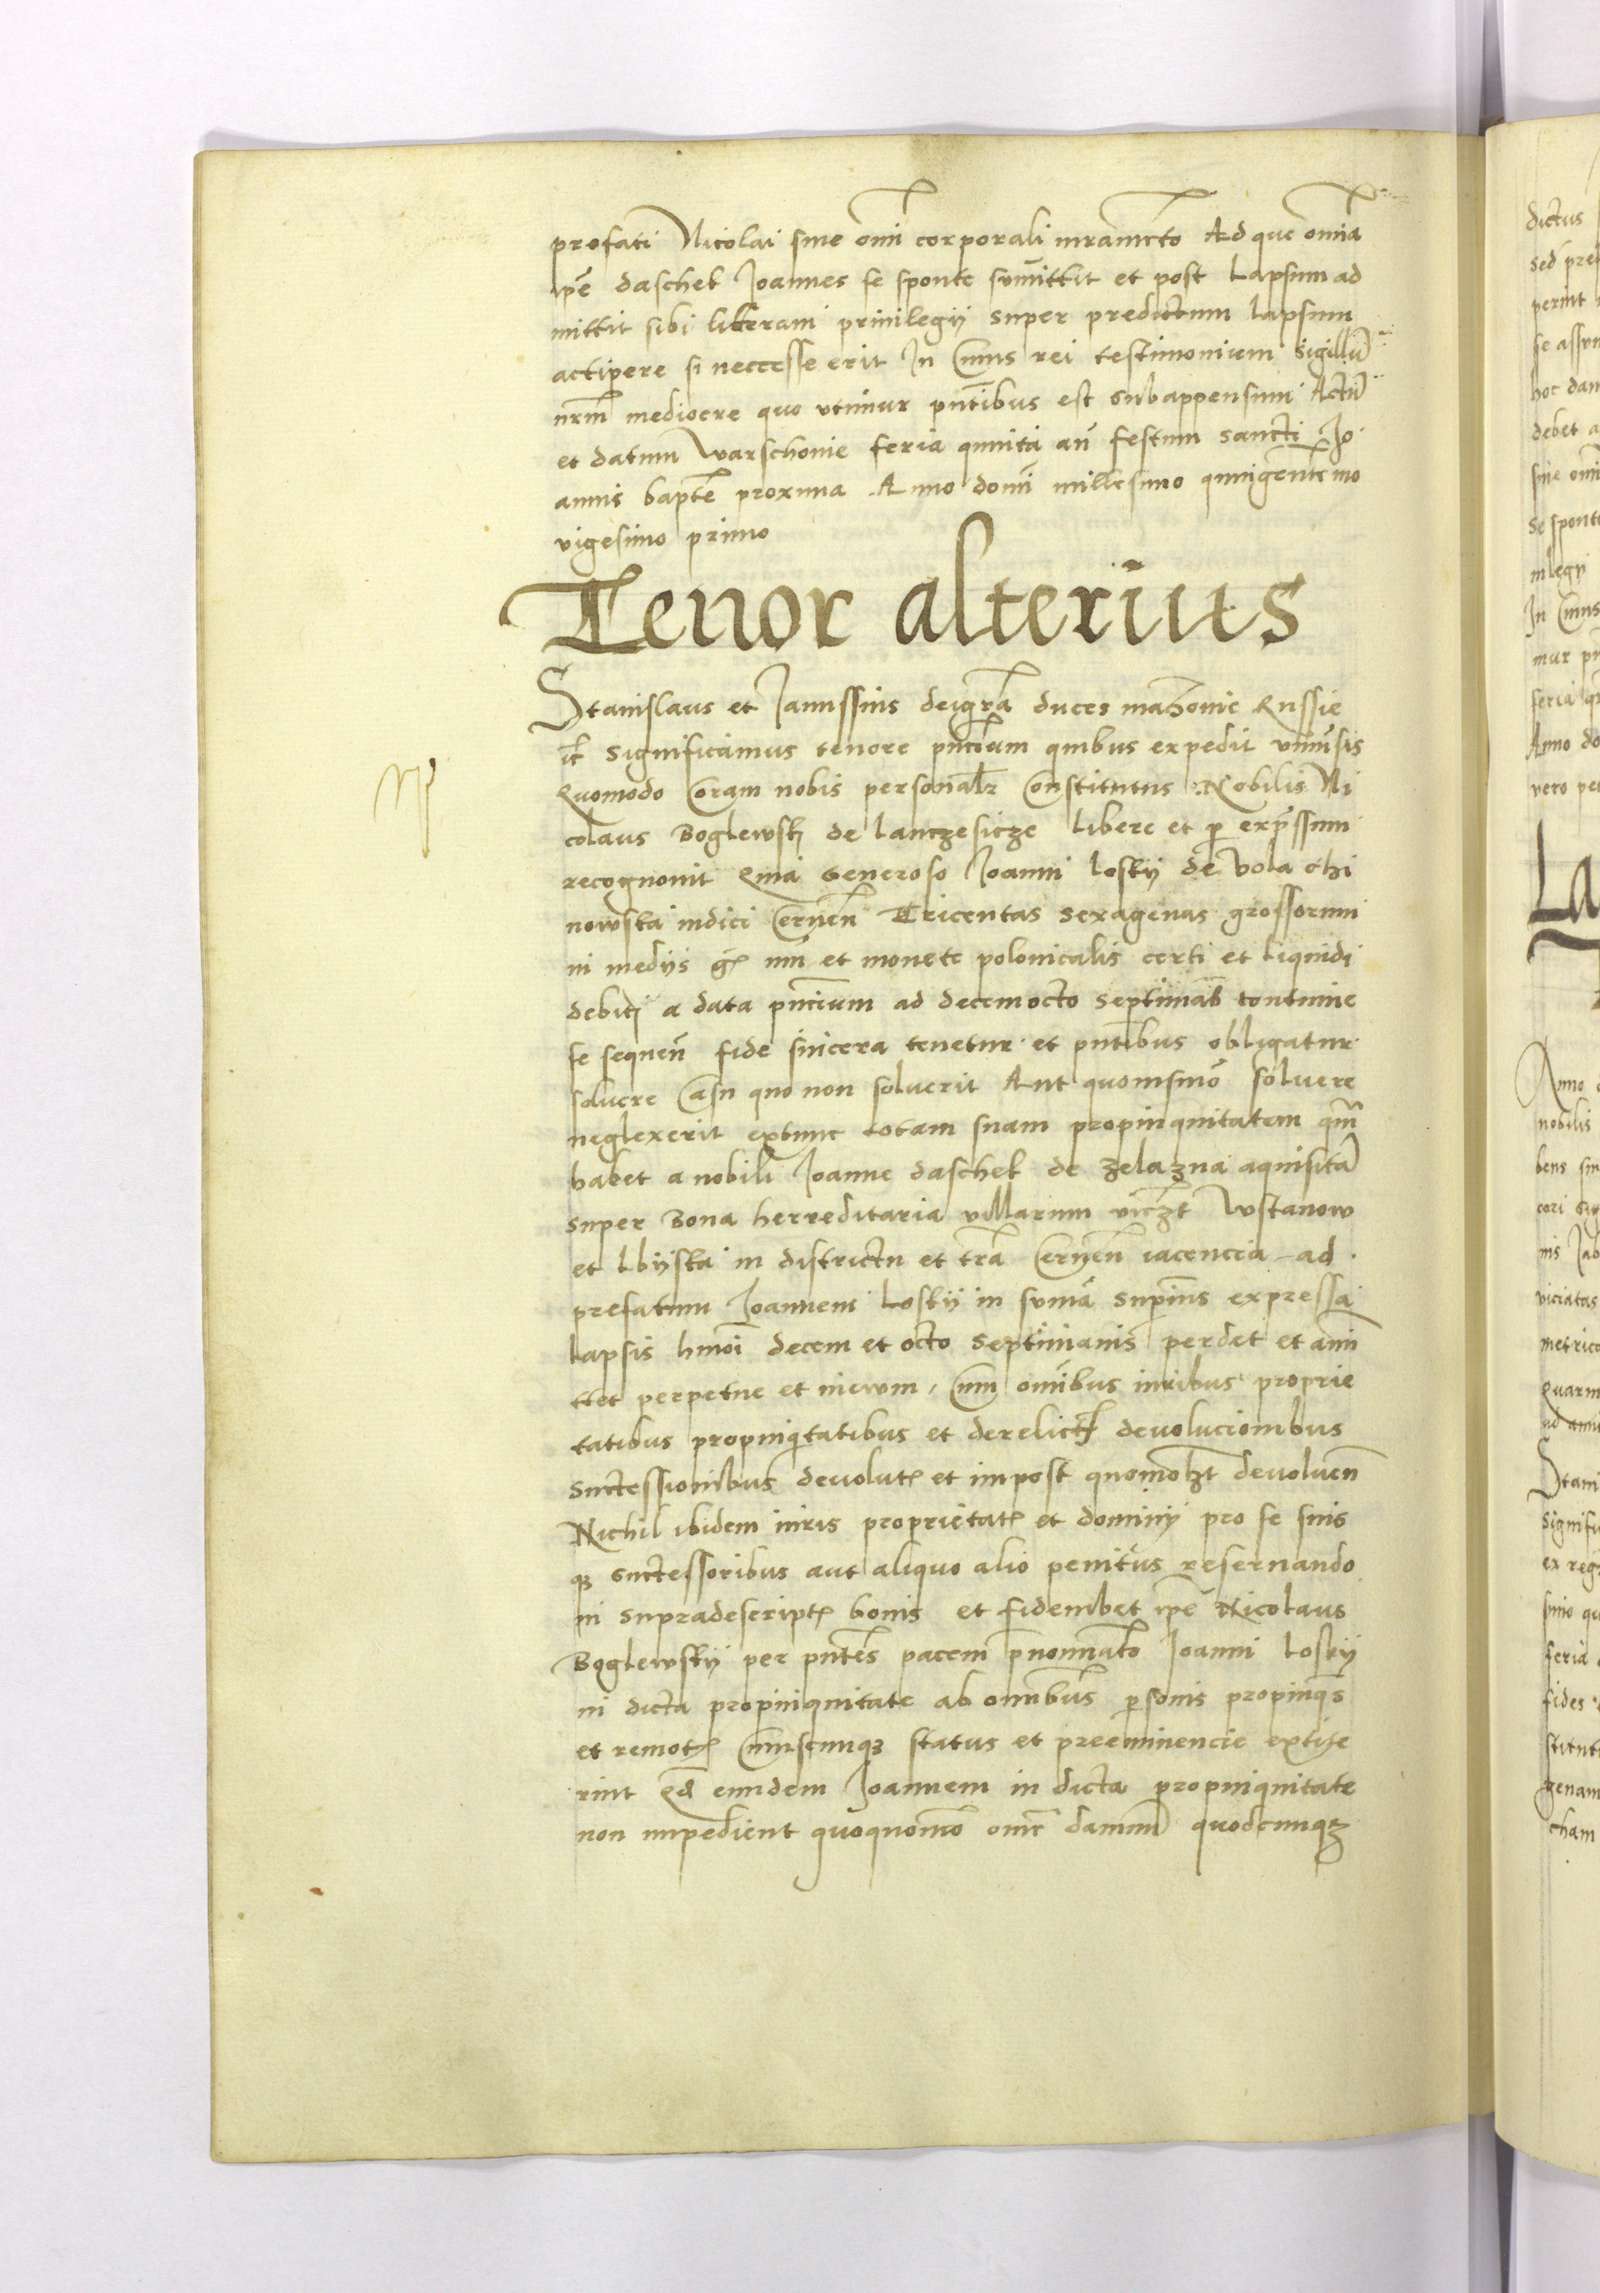 prefati Nicolai sine omi corporali iuramento Ad que omnia
ipe daschek Joannes se sponte summittit et post lapsum ad
mittit sibi literam priuilegij super predictum lapsum
accipere si neccesse erit In Cuius rei testimonium Sigillu
nrm mediocre quo vtimur pntibus est subappensum Actu
et datum Warschouie feria quinta an festum sancti Jo
annis bapte proxima Anno domi millesimo quingentemo
vigesimo primo
Tenor alterius
Stanislaus et Janussius dei gra duces mazouie Russie
etc Significamus tenore pncium quibus expedit vniusis
Quomodo Coram nobis personalr Constitutus Nobilis Ni
colaus Boglewskj de lanczesicze libere et p expssum
recognouit Quia Generoso Joanni loskij de vola chi
nowska iudici Cernen Tricentas sexagenas grossorum
in medijs gr nri et monete polonicalis certi et liquidi
debitj a data pncium ad decemocto septimas continue
se sequen fide sincera tenetur et pntibus obligatur
soluere Casu quo non soluerit Aut quouismo soluere
neglexerit extunc totam suam propinquitatem qm
habet a nobili Joanne daschek de zelazna aquisita
super Bona herreditaria villarum viczt Wstanow
et Lbijska in districtu et tra Cernen iacencia ad
prefatum Joannem Loskij in suma superius expressa
lapsis hmoi decem et octo septimanis perdet et ami
ttet perpetue et in ewm, Cum omibus iuribus proprie
tatibus propinqtatibus et derelict devolucionibus
successionibus devolut et impost quomozt deuoluen
Nichil ibidem iuris proprietat et dominij pro se suis
qz successoribus aut aliquo alio penitus reseruando
in supradescript bonis et fideiubet ipe Nicolaus
Boglewskij per pntes pacem pnominato Joanni loskij
in dicta propinquitate ab omnibus psonis propinqs
et remot Cuiuscunqz status et preeminencie extite
rint Qd eundem Joannem in dicta propinquitate
non impedient quoquomo omne damnu quodcunqz